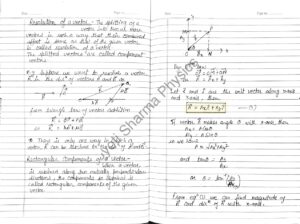 Resolution of a vector:- The splitting of a
vector into two or more
vectors in such a way that their combined
effect is same as that of the given vector
is called resolution of a vector.
The splitted vectors are called component
vectors.
e.g. Suppose we want to resolve a vector
R in the dirⁿ of vectors A and B.
from triangle law of vector addition
* There is only one way in which a
vector R can be resolved in the dirⁿ of A and B.
Rectangular Components of a vector :-
when a vector is
splitted along two mutually perpendicular
directions, the components so obtained is
called rectangular components of the given
vector.
Let i and j are the unit vector along x-axis
and y-axis, then
R = Rx i + Ry j
If vector R makes angle θ with x-axis, then
Rx = R cosθ
Ry = R sinθ
and tanθ = Ry
Rx
or θ = tan⁻¹ (Ry
Rx)
from eqⁿ (1) we can find magnitude of
R and dirⁿ of R with x-axis.
Sharma Physics